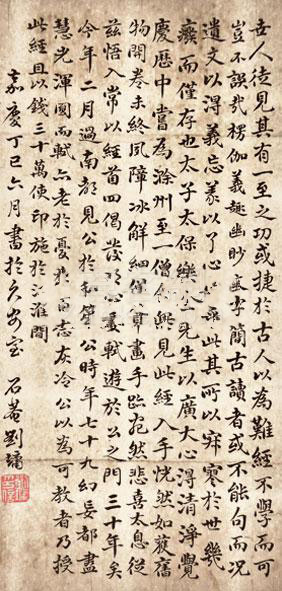 世人徒見其有一至之功或捷於古人以為難經不學而可
豈不誤哉楞伽義趣幽眇文字簡古讀者或不能句而況
遺文以得義忘義以了心者乎此其所以寂寥於世幾
癈而僅存也太子太保樂全先生以廣大心得清淨覺
慶歷中嘗為滁州至一僧舍偶見此經入手恍然如獲舊
物開卷未終夙障冰解細視筆畫手跡宛然悲喜太息從
茲悟入常以經首四偈發明心要軾遊於公之門三十年矣
今年二月過南都見公於私第公時年七十九幻妄都盡
慧光渾圜而軾亦老於憂患百志灰冷公以為可教者乃授
此經且以錢三十萬使印施於江淮間
嘉慶丁巳六月書於久安室 石菴劉墉